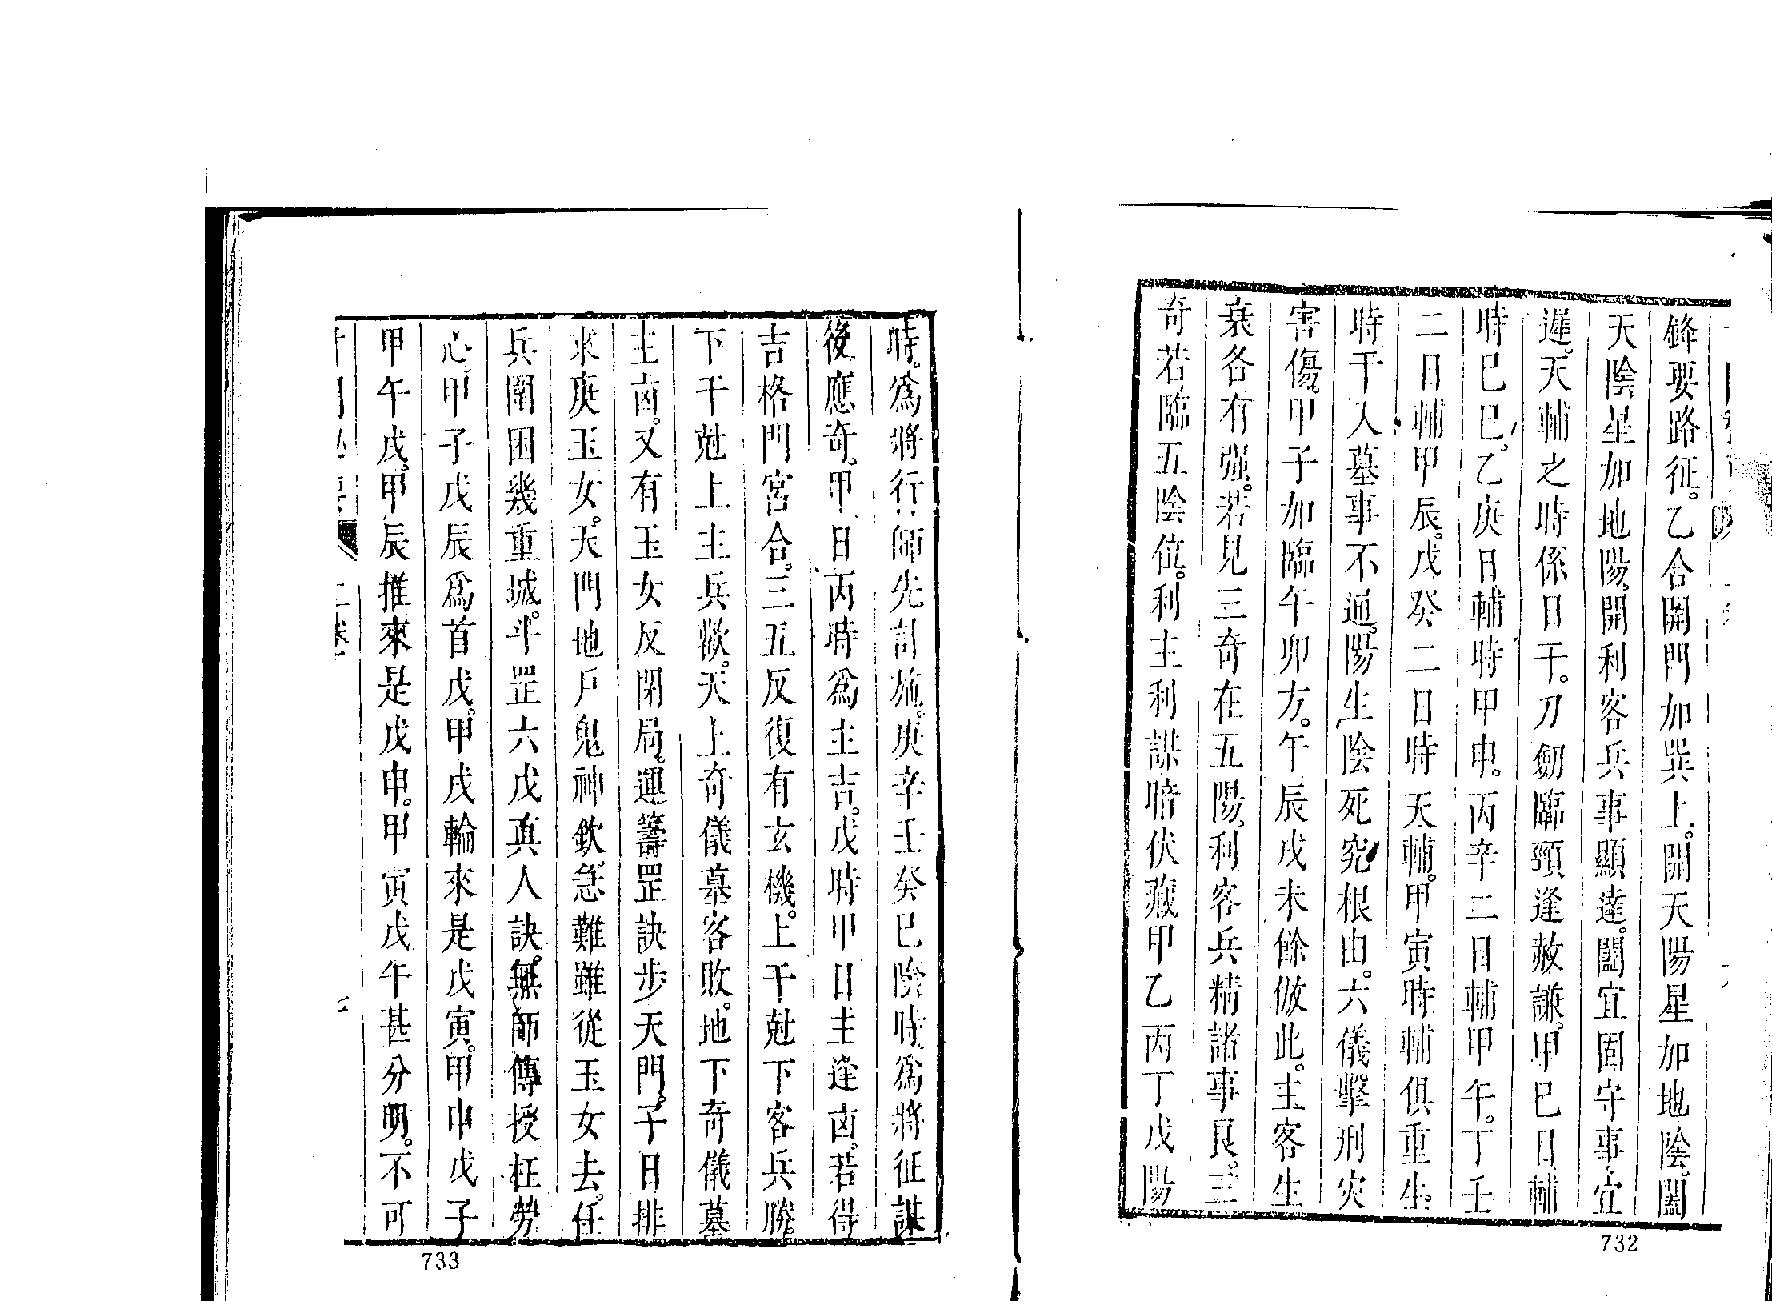 鋒要路征。乙合開門加巽上。開天陽星加地陰。闔
天陰星加地陽。開利客兵事顯達。闔宜固守事宜
遲。天輔之時係日干。刀劒臨頸逢赦謙。甲巳日輔
時巳巳。乙庚日輔時甲申。丙辛二日輔甲午。丁壬
二日輔甲辰。戊癸二日時天輔。甲寅時輔俱重生。
時干入墓事不通。陽生陰死究根由。六儀擊刑灾
害傷。甲子加臨午卯方。午辰戌未餘倣此。主客生
衰各有强。若見三奇在五陽。利客兵精諸事良。三
奇若臨五陰位。利主利謀暗伏藏甲乙丙丁戊陽
732
時。為將行師先計施。庚辛壬癸巳陰時為將征謀
後應奇。甲日丙時為主吉。戊時甲日主逢凶。若得
吉格門宮合。三五反復有玄機。上干尅下客兵勝。
下干尅上主兵歡。天上奇儀墓客敗。地下奇儀墓
主凶。又有玉女反閉局。運籌罡訣步天門。子日排
來庚玉女。天門地戶鬼神欽。急難雖從玉女去。任
兵圍困幾重城。斗罡六戊真人訣。無師傳授枉勞
心。甲子戊辰為首戊。甲戌輪來是戊寅。甲申戊子
甲午戊。甲辰推來是戊申。甲寅戊午甚分明。不可
二卷
七
733